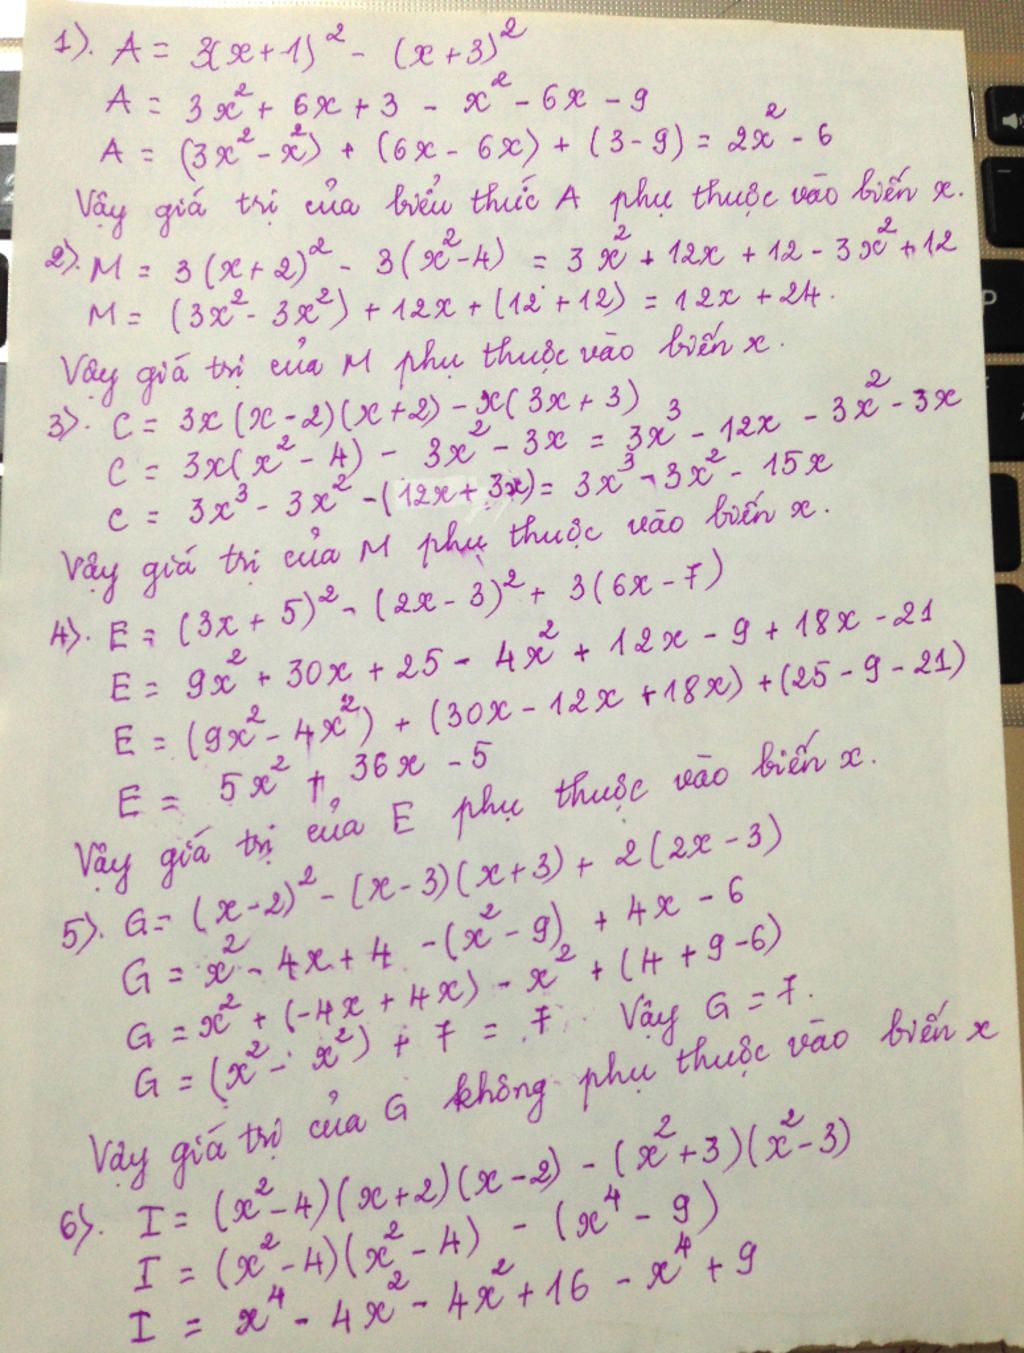 1). A = 3(x+1)² - (x+3)²
A = 3x² + 6x + 3 - x² - 6x - 9
A = (3x² - x²) + (6x - 6x) + (3-9) = 2x² - 6
Vậy giá trị của biểu thức A phụ thuộc vào biến x.
2). M = 3(x+2)² - 3(x²-4) = 3x² + 12x + 12 - 3x² + 12
M = (3x² - 3x²) + 12x + (12 + 12) = 12x + 24.
Vậy giá trị của M phụ thuộc vào biến x.
3). C = 3x(x-2)(x+2) - x(3x+3)
C = 3x(x² - 4) - 3x² - 3x = 3x³ - 12x - 3x² - 3x
C = 3x³ - 3x² - (12x + 3x) = 3x³ - 3x² - 15x
Vậy giá trị của M phụ thuộc vào biến x.
4). E = (3x + 5)² - (2x - 3)² + 3(6x - 7)
E = 9x² + 30x + 25 - 4x² + 12x - 9 + 18x - 21
E = (9x² - 4x²) + (30x - 12x + 18x) + (25 - 9 - 21)
E = 5x² + 36x - 5
Vậy giá trị của E phụ thuộc vào biến x.
5). G = (x-2)² - (x-3)(x+3) + 2(2x-3)
G = x² - 4x + 4 - (x² - 9) + 4x - 6
G = x² + (-4x + 4x) - x² + (4 + 9 - 6)
G = (x² - x²) + 7 = 7. Vậy G = 7.
Vậy giá trị của G không phụ thuộc vào biến x
6). I = (x²-4)(x+2)(x-2) - (x²+3)(x²-3)
I = (x²-4)(x²-4) - (x⁴ - 9)
I = x⁴ - 4x² - 4x² + 16 - x⁴ + 9